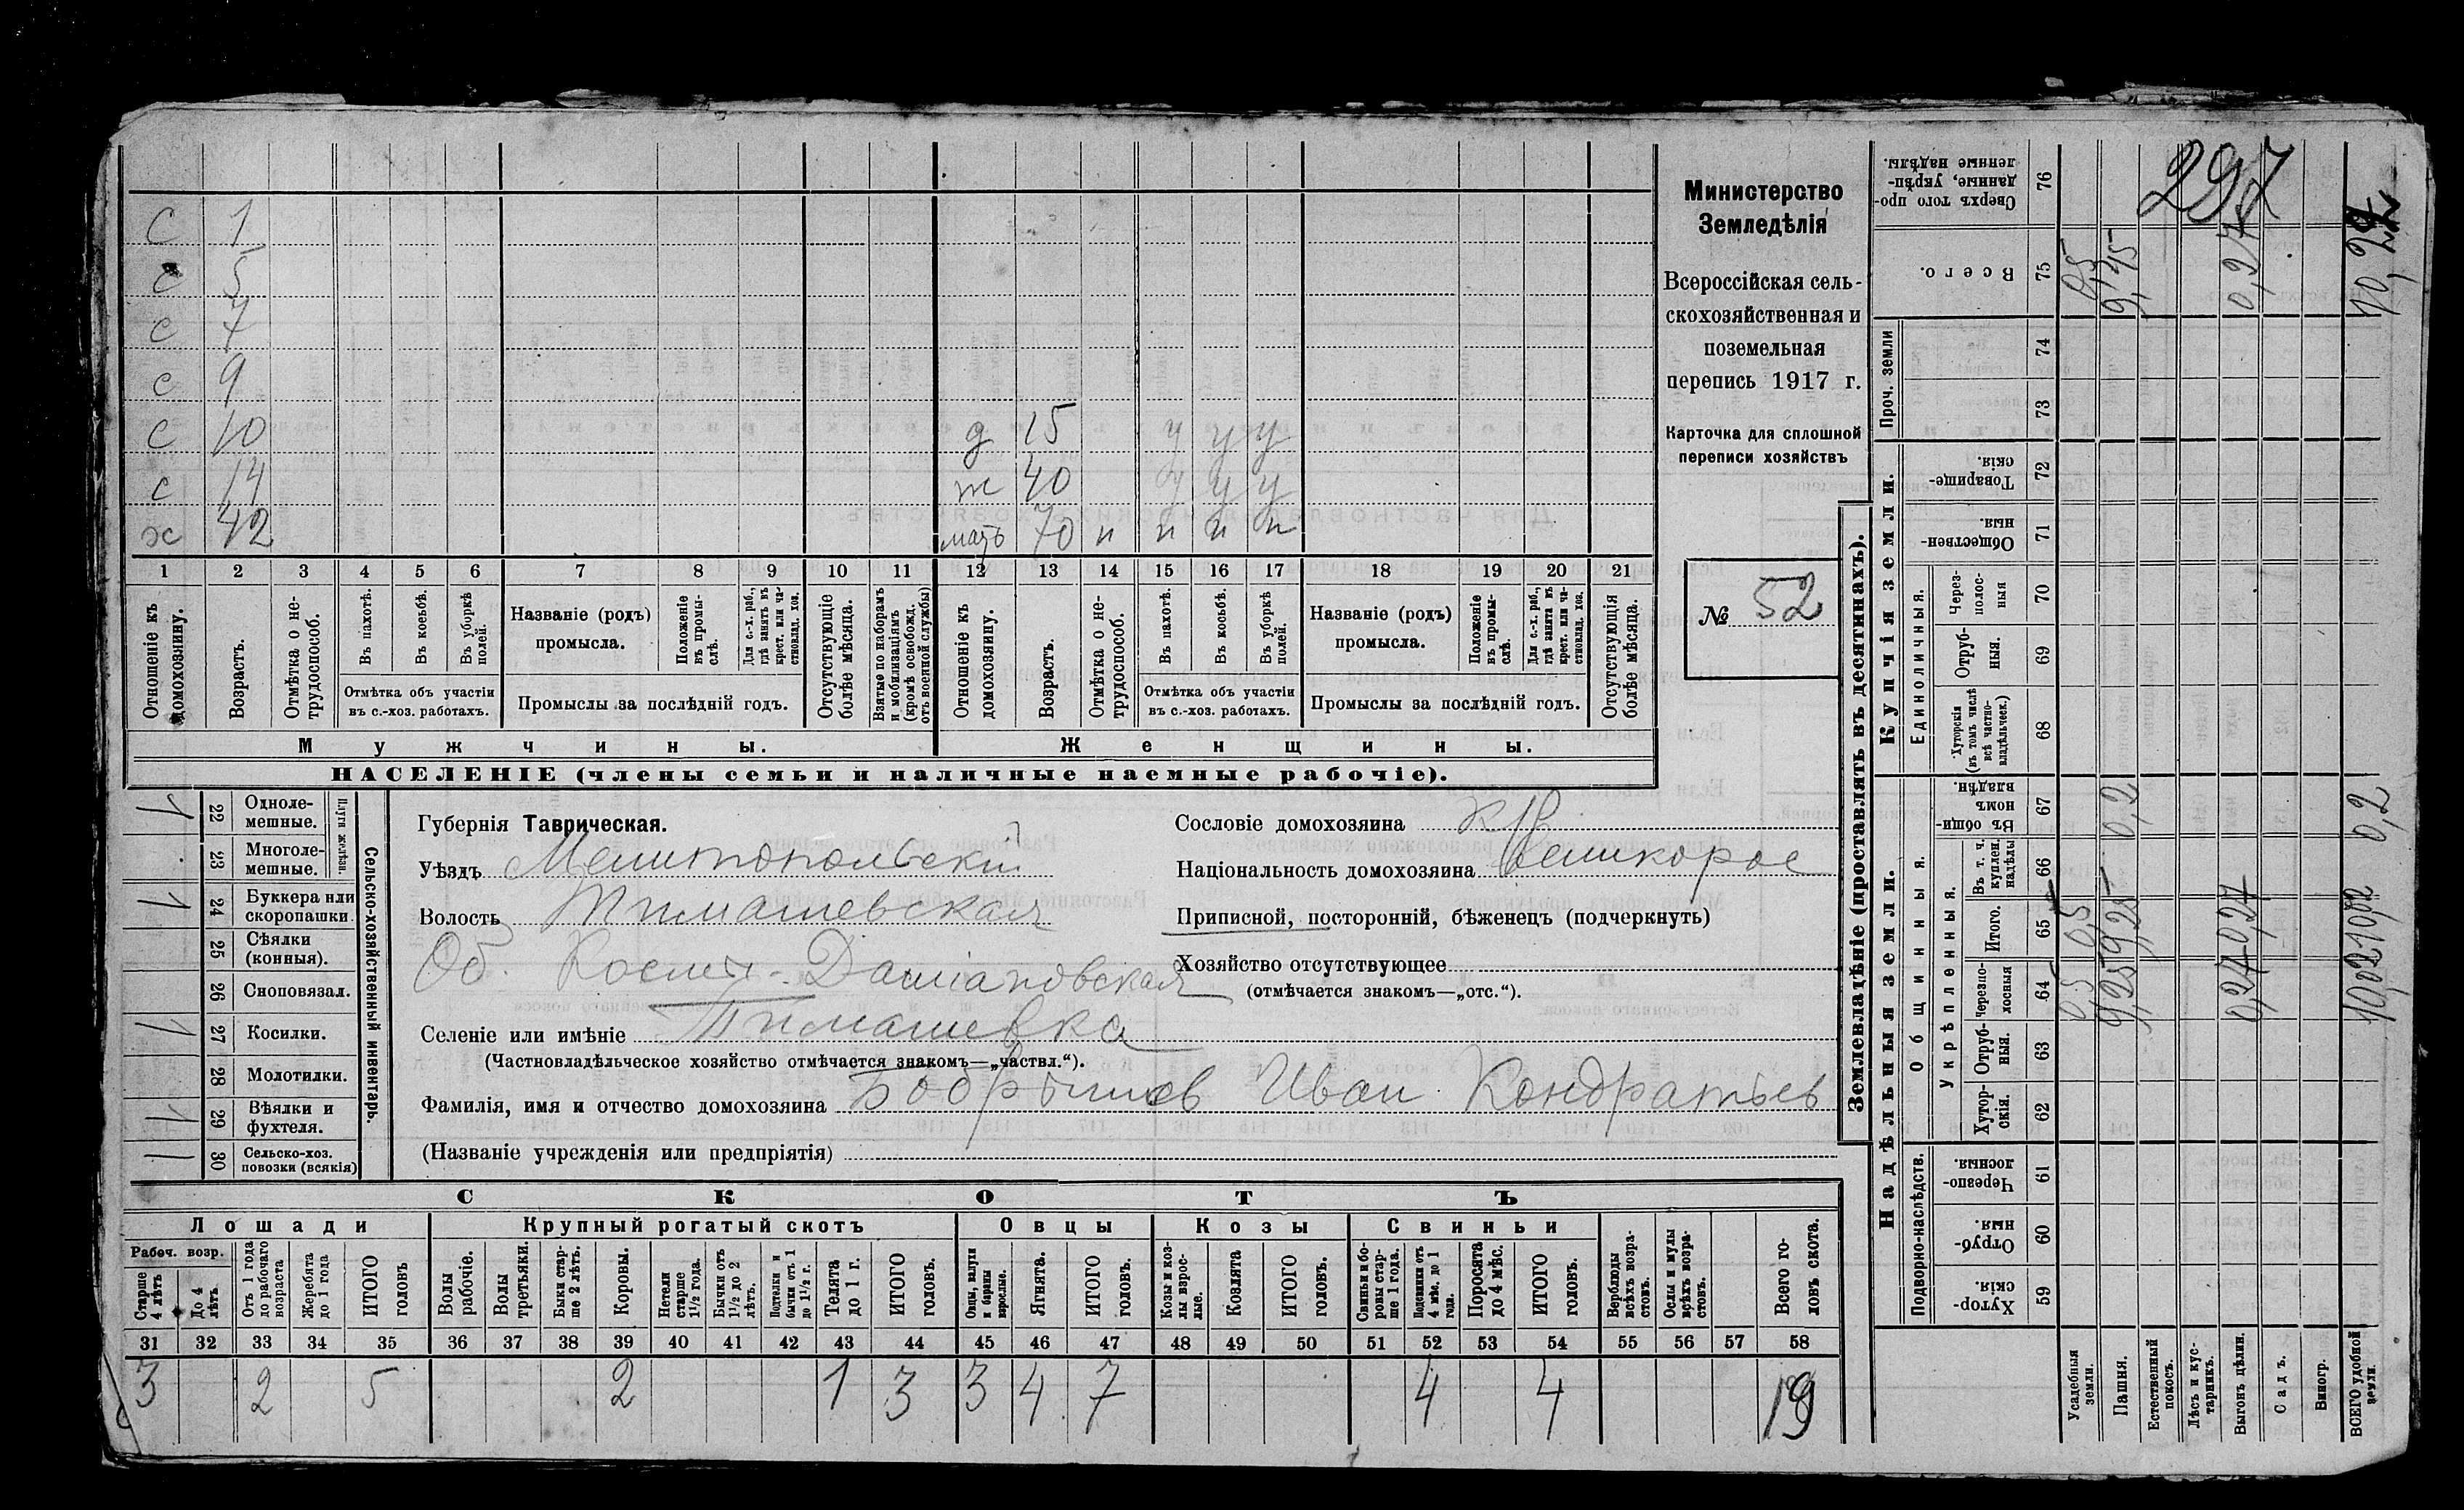 С 1
с 5
с 7
с 9
с 10 д 15 у у у
с 14 ж 40 у у у
х 42 мать 70 н н н н
1 2 3 4 5 6 7 8 9 10 11 12 13 14 15 16 17 18 19 20 21
Отношеніе къ домохозяину.
Возрастъ.
Отмѣтка о не-трудоспособ.
Въ пахотѣ.
Въ косьбѣ.
Въ уборкѣ полей.
Отмѣтка объ участіи
въ с.-хоз. работахъ.
Названіе (родъ)
промысла.
Положеніе въ промы-слѣ.
Для с.-х. раб., гдѣ занятъ въ крест. или ча-стновлад. хоз.
Промыслы за послѣдній годъ.
Отсутствующіе болѣе мѣсяца.
Взятые по наборамъ и мобилизаціямъ (кромѣ освобожд. отъ военной службы)
Отношеніе къ домохозяину.
Возрастъ.
Отмѣтка о не-трудоспособ.
Въ пахотѣ.
Въ косьбѣ.
Въ уборкѣ полей.
Отмѣтка объ участіи
въ с.-хоз. работахъ.
Названіе (родъ)
промысла.
Положеніе въ промы-слѣ.
Для с.-х. раб., гдѣ занятъ въ крест. или ча-стновлад. хоз.
Промыслы за послѣдній годъ.
Отсутствующія болѣе мѣсяца.
Мужчины. Женщины.
НАСЕЛЕНІЕ (члены семьи и наличные наемные рабочіе).
Министерство
Земледѣлія
Всероссійская сель-
скохозяйственная и
поземельная
перепись 1917 г.
Карточка для сплошной
переписи хозяйствъ
№ 52
Сельско-хозяйственный инвентарь.
Плуги желѣзн.
1 22 Одноле-
мешные.
23 Многоле-
мешные.
1 24 Буккера или
скоропашки.
25 Сѣялки
(конныя).
26 Сноповязал.
1 27 Косилки.
28 Молотилки.
1 29 Вѣялки и
фухтеля.
1 30 Сельско-хоз.
повозки (всякія)
Губернія Таврическая.
Уѣздъ Мелитопольскій
Волость Тимашевская
Об. Косми-Даміановская
Селеніе или имѣніе Тимашевка
(Частновладѣльческое хозяйство отмѣчается знакомъ—„частвл.“).
Фамилія, имя и отчество домохозяина Бобрышов Иван Кондратьев
(Названіе учрежденія или предпріятія)
Сословіе домохозяина кр
Національность домохозяина Великорос
Приписной, посторонній, бѣженецъ (подчеркнуть)
Хозяйство отсутствующее
(отмѣчается знакомъ—„отс.“).
СКОТЪ
Лошади Крупный рогатый скотъ Овцы Козы Свиньи
Рабоч. возр.
Старше 4 лѣтъ
До 4 лѣтъ.
Отъ 1 года до рабочаго возраста
Жеребята до 1 года
ИТОГО головъ
Волы рабочіе.
Волы третьяки.
Быки стар-ше 2 лѣтъ.
Коровы.
Нетели старше 1½ года.
Бычки отъ 1½ до 2 лѣтъ.
Подтелки и бычки отъ 1 до 1½ г.
Телята до 1 г.
ИТОГО головъ.
Овцы, валухи и бараны взрослые.
Ягнята.
ИТОГО головъ.
Козы и коз-лы взрос-лые.
Козлята
ИТОГО головъ.
Свиньи и бо-ровы стар-ше 1 года.
Подсвинки отъ 4 мѣс. до 1 года.
Поросята до 4 мѣс.
ИТОГО головъ.
Верблюды всѣхъ возра-стовъ.
Ослы и мулы всѣхъ возра-стовъ.
Всего го-ловъ скота.
31 32 33 34 35 36 37 38 39 40 41 42 43 44 45 46 47 48 49 50 51 52 53 54 55 56 57 58
3 2 5 2 1 3 3 4 7 4 4 19
Землевладѣніе (проставлять въ десятинахъ).
Надѣльныя земли. Купчія земли. Проч. земли
Подворно-наслѣдств.
Общинныя.
Укрѣпленныя.
Единоличныя.
Хутор-скія. 59
Отруб-ныя. 60
Черезпо-лосныя. 61
Хутор-скія. 62
Отруб-ныя. 63
Черезпо-лосныя 64
Итого. 65
Въ т. ч. куплен. надѣлы 66
Въ общи-номъ владѣн. 67
Хуторскія (въ томъ числѣ всѣ частно-владѣльческ.) 68
Отруб-ныя. 69
Через-полос-ныя 70
Обществен-ныя. 71
Товарище-скія. 72
73
74
Всего. 75
Сверхъ того про-данные, укрѣп-ленные надѣлы. 76
297
Усадебныя земли. 0,5 0,5 0,5
Пашня. 9,25 9,25 0,2 9,45
Естественный покосъ.
Лѣсъ и кус-тарникъ.
Выгонъ цѣлин. 0,27 0,27 0,27
Садъ.
Виногр.
ВСЕГО удобной земли. 10,02 10,02 0,2 10,22